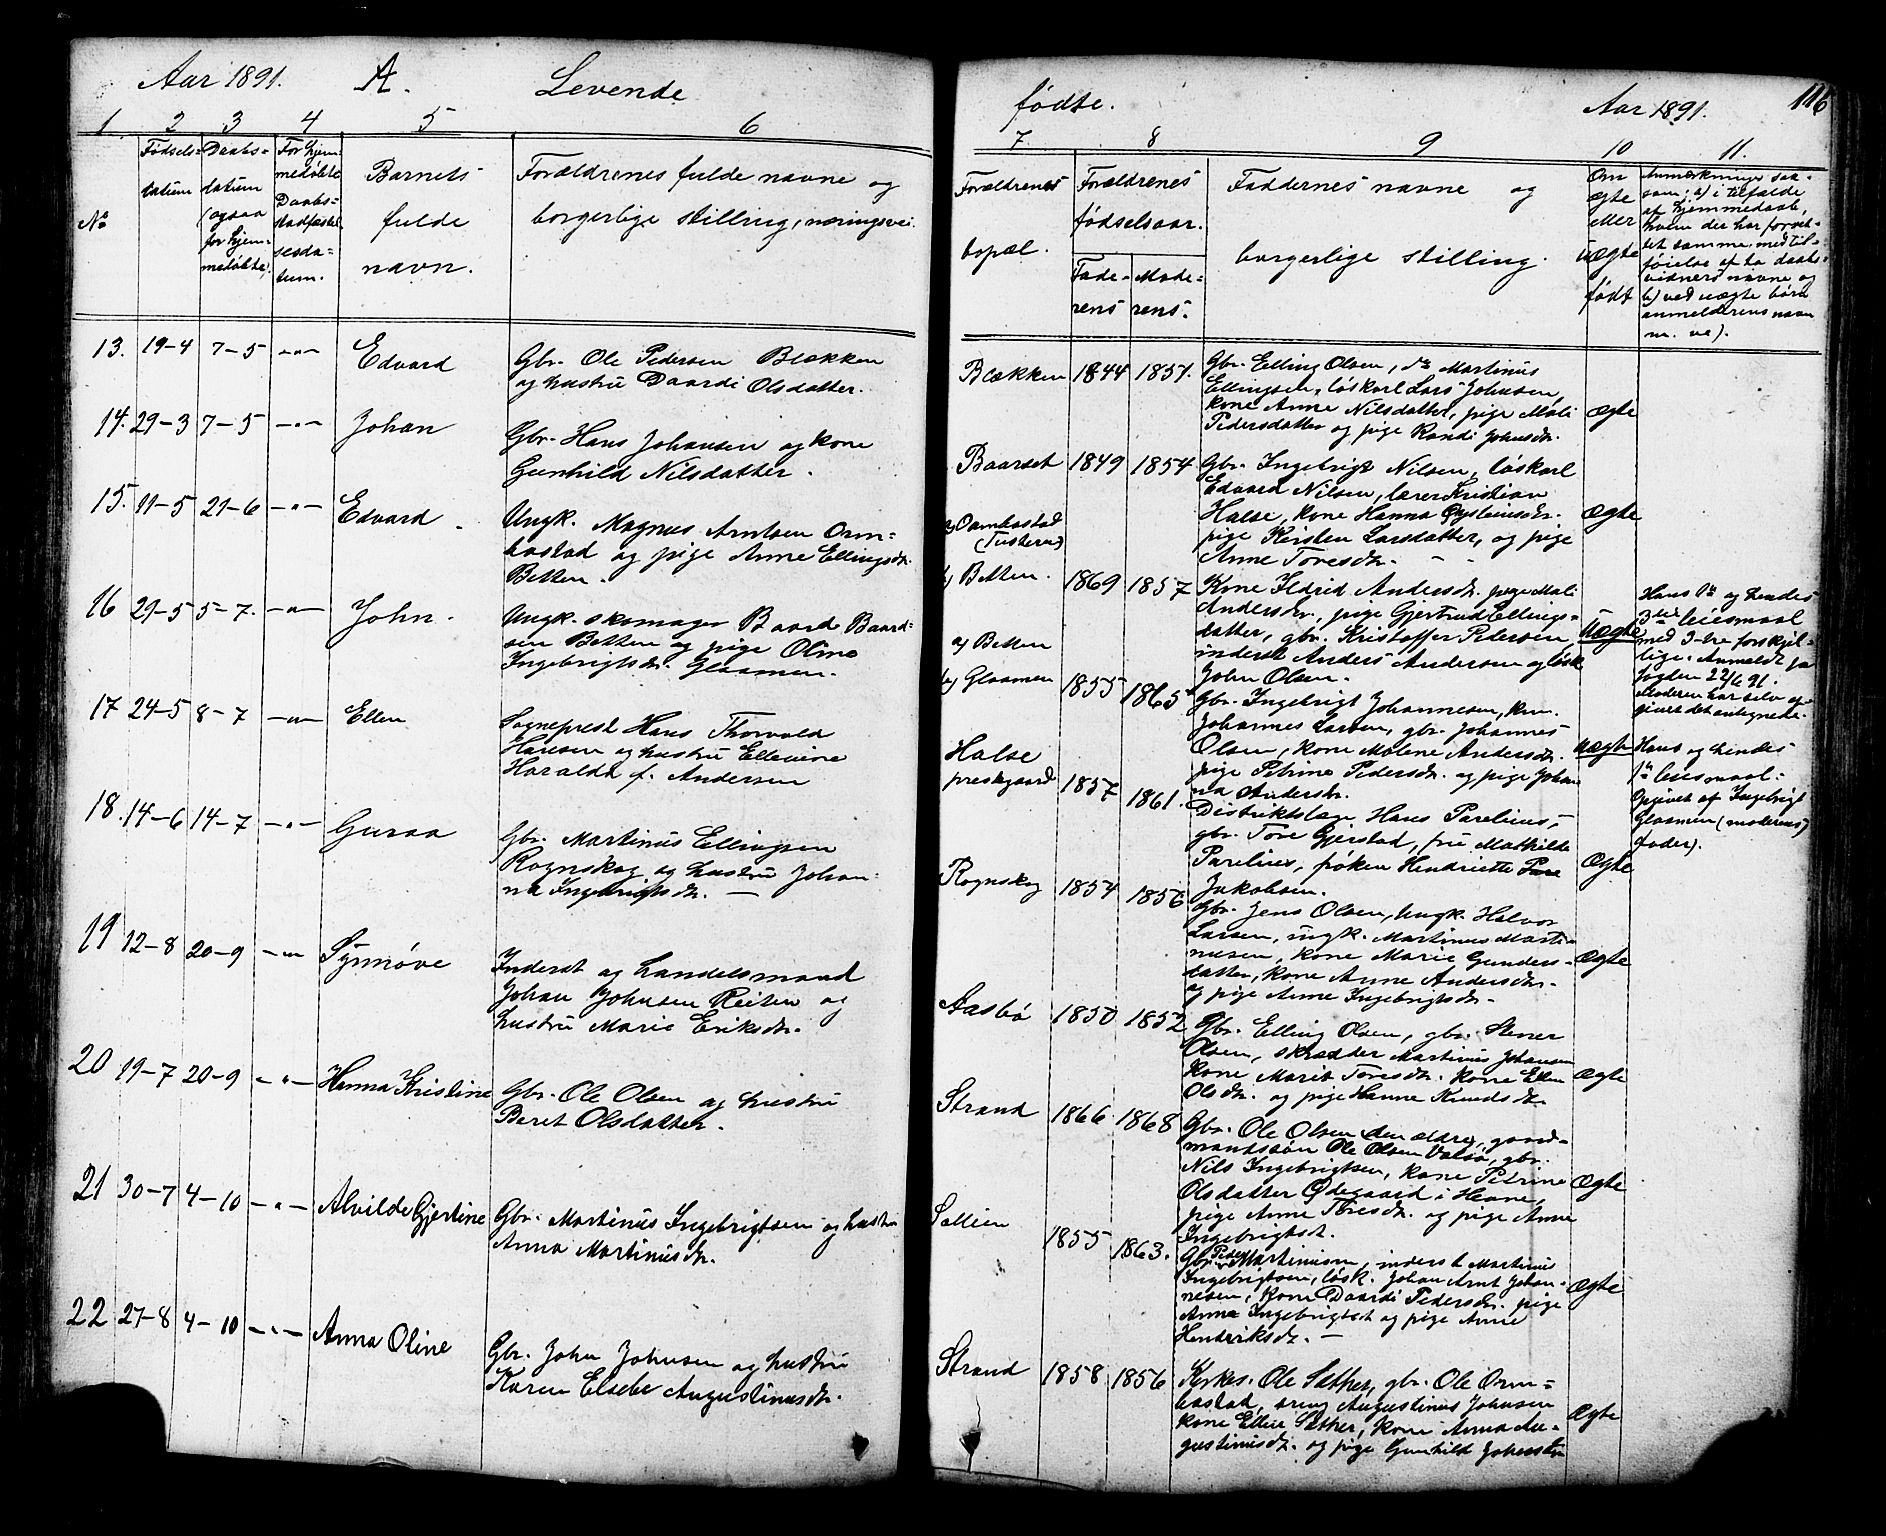 Aar 1891. A. Levende
1 2 3 4 5 6
No
Fødsels=
datum
Daabs=
datum
(ogsaa
for hjem=
medøbte).
For hjem=
medøbte
Daabs=
stadfæstel
sesda=
tum.
Barnets
fulde
navn.
Forældrenes fulde navne og
borgerlige stilling, næringsvei.
13. 19-4 7-5 -"- Edvard
Gbr. Ole Pedersen Blækken
og hustru Daardi Olsdatter.
14. 29-3 7-5 -"- Johan
Gbr. Hans Johansen og kone
Gunhild Nilsdatter.
15. 11-5 21-6 -"- Edvard
Ungk. Magnus Arntsen Orm=
bostad og pige Anne Ellingsdr.
Betten.
16 29-5 5-7. -"- John.
Ungk. skomager Baard Baard=
sen Betten og pige Oline
Ingebrigtsdr. Glaamen.
17 24-5 8-7 -"- Ellen
Sogneprest Hans Thorvald
Hansen og hustru Ellevine
Haralda f. Andersen
18. 14-6 14-7 -"- Guraa
Gbr. Martinus Ellingsen
Rognskog og hustru Johan=
na Ingebrigtsdr.
19 12-8 20-9 -"- Synnøve
Inderst og handelsmand
Johan Johnsen Reiten og
hustru Marie Eriksdr.
20 19-7 20-9 -"- Hanna Kristine
Gbr. Ole Olsen og hustru
Beret Olsdatter.
21 30-7 4-10 -"- Alvilde Gjertine
Gbr. Martinus Ingebrigtsen og hustru
Anna Martinusdr.
22 27-8 4-10 -"- Anna Oline
Gbr. John Johnsen og hustru
Karen Elsebe Augustinusdr.
116
fødte. Aar 1891.
7 8 9 10 11.
Forældrenes
bopæl.
Forældrenes
fødselsaar.
Fade=
rens
Mode=
rens.
Faddernes navne og
borgerlige stilling.
Om
ægte
eller
uægte
født
Anmærkninger saa=
som: a) i tilfælde
af hjemmedaab,
hvem der har forret=
tet samme, med til=
føielse af to daabs=
vidners navne og
b) ved uægte børn
anmelderens navn
m. v.).
Blækken 1844 1857.
Gbr. Elling Olsen, do Martinus
Ellingsen, løskarl Lars Johnsen,
kone Anne Nilsdatter, pige Mali
Pedersdatter og pige Randi Johnsdr.
Ægte
Baarset 1849 1854
Gbr. Ingebrigt Nilsen, løskarl
Edvard Nilsen, lærer Kristian
Halse, kone Hanna Øysteinsdr.
pige Kirsten Larsdatter, og pige
Anne Toresdr.
Ægte
a) Oarmbostad
(Tusteren)
b) Betten. 1869 1857
Kone Ildrid Andersdr. pige Mali
Andersdr., pige Gjertrud Ellings=
datter, gbr. Kristoffer Pedersen,
inderst Anders Andersen og løsk.
John Olsen.
Uægte
Hans 1te og hendes
3die leiermaal
med 3-tre forskjel=
lige. Anmeldt for
fogden 22/6 91.
Moderen har selv op=
givet det antegnede.
a) Betten
b) Glaamen 1855 1865
Gbr. Ingebrigt Johannesen, km.
Johannes Larsen, gbr. Johannes
Olsen, kone Malene Andersdr.
pige Petrine Pedersdr. og pige Johan
na Andersdr.
Uægte
Hans og hendes
1te leiermaal.
Opgivet af Ingebrigt
Glaamen (moderens)
fader).
Halse
prestgaard 1857 1861.
Distriktslæge Hans Parelius,
gbr. Tore Gjerstad, fru Mathilde
Parelius, frøken Henriette Pare
Jakobsen.
Ægte
Rognskog 1854 1856
Gbr. Jens Olsen, Ungk. Halvor
Larsen, ungk. Martinus Marti=
nusen, kone Marie Gunders=
datter, kone Anne Andersdr.
og pige Anne Ingebrigtsdr.
Ægte
Aasbø 1850 1852
Gbr. Elling Olsen, gbr. Stener
Olsen, skrædder Martinus Johansen
kone Marit Toresdr. kone Ellen
Olsdr. og pige Hanne Knudsdr.
Ægte
Strand 1866 1868
Gbr. Ole Olsen den ældre, gaard=
mandssøn Ole Olsen Valsø, gbr.
Nils Ingebrigtsen, kone Petrine
Olsdatter Ødegaard i Hevne,
pige Anne Toresdr. og pige Anne
Ingebrigtsdr.
Ægte
Sollien 1855 1863.
Gbr. Peder Martinusen, inderst Martinus
Ingebrigtsen, løsk. Johan Arnt Johan=
nesen, kone Daardi Pedersdr. pige
Anna Ingebrigtsdr og pige Anne
Hendriksdr.
Ægte
Strand 1858 1856
Kirkes. Ole Sæther, gbr. Ole Orm=
bostad, dreng Augustinus Johnsen
kone Ellen Sæther, kone Anna Au=
gustinusdr. og pige Gunhild Johnsdr
Ægte